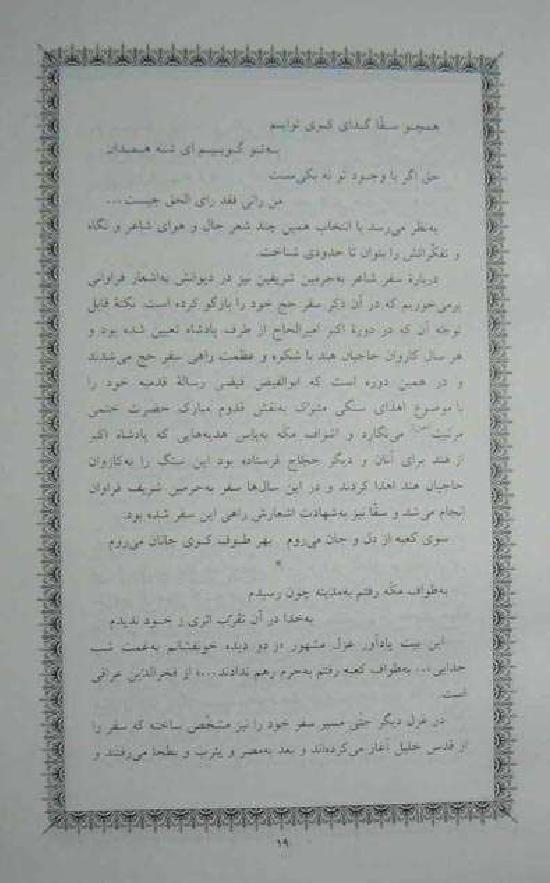 همچو سقّا گدای کوی توایم
به‌تو گوییم ای شه همدان
حق اگر با وجود تو نه یکی‌ست
من رانی فقد رای الحق چیست...
به‌نظر می‌رسد با انتخاب همین چند شعر حال و هوای شاعر و نگاه
و تفکّراتش را بتوان تا حدودی شناخت.
دربارهٔ سفر شاعر به‌حرمین شریفین نیز در دیوانش به‌اشعار فراوانی
برمی‌خوریم که در آن ذکر سفر حج خود را بازگو کرده است. نکتهٔ قابل
توجه آن که در دورهٔ اکبر امیرالحاج از طرف پادشاه تعیین شده بود و
هر سال کاروان حاجیان هند با شکوه و عظمت راهی سفر حج می‌شدند
و در همین دوره است که ابوالفیض فیضی رسالهٔ قدمیه خود را
با موضوع اهدای سنگی متبرک به‌نقش قدوم مبارک حضرت ختمی
مرتبت می‌نگارد و اشراف مکّه به‌پاس هدیه‌هایی که پادشاه اکبر
از هند برای آنان و دیگر حجّاج فرستاده بود این سنگ را به‌کاروان
حاجیان هند اهدا کردند و در این سال‌ها سفر به‌حرمین شریف فراوان
انجام می‌شد و سقّا نیز به‌شهادت اشعارش راهی این سفر شده بود.
سوی کعبه از دل و جان می‌روم بهر طوف کوی جانان می‌روم
*
به‌طواف مکّه رفتم به‌مدینه چون رسیدم
به‌خدا در آن تقرّب اثری ز خود ندیدم
این بیت یادآور غزل مشهور «ز دو دیده خونفشانم به‌غمت شب
جدایی... به‌طواف کعبه رفتم به‌حرم رهم ندادند...» از فخرالدّین عراقی
است.
در غزل دیگر حتّی مسیر سفر خود را نیز مشخّص ساخته که سفر را
از قدس خلیل آغاز می‌کرده‌اند و بعد به‌مصر و یثرب و بطحا می‌رفتند و
۱۹